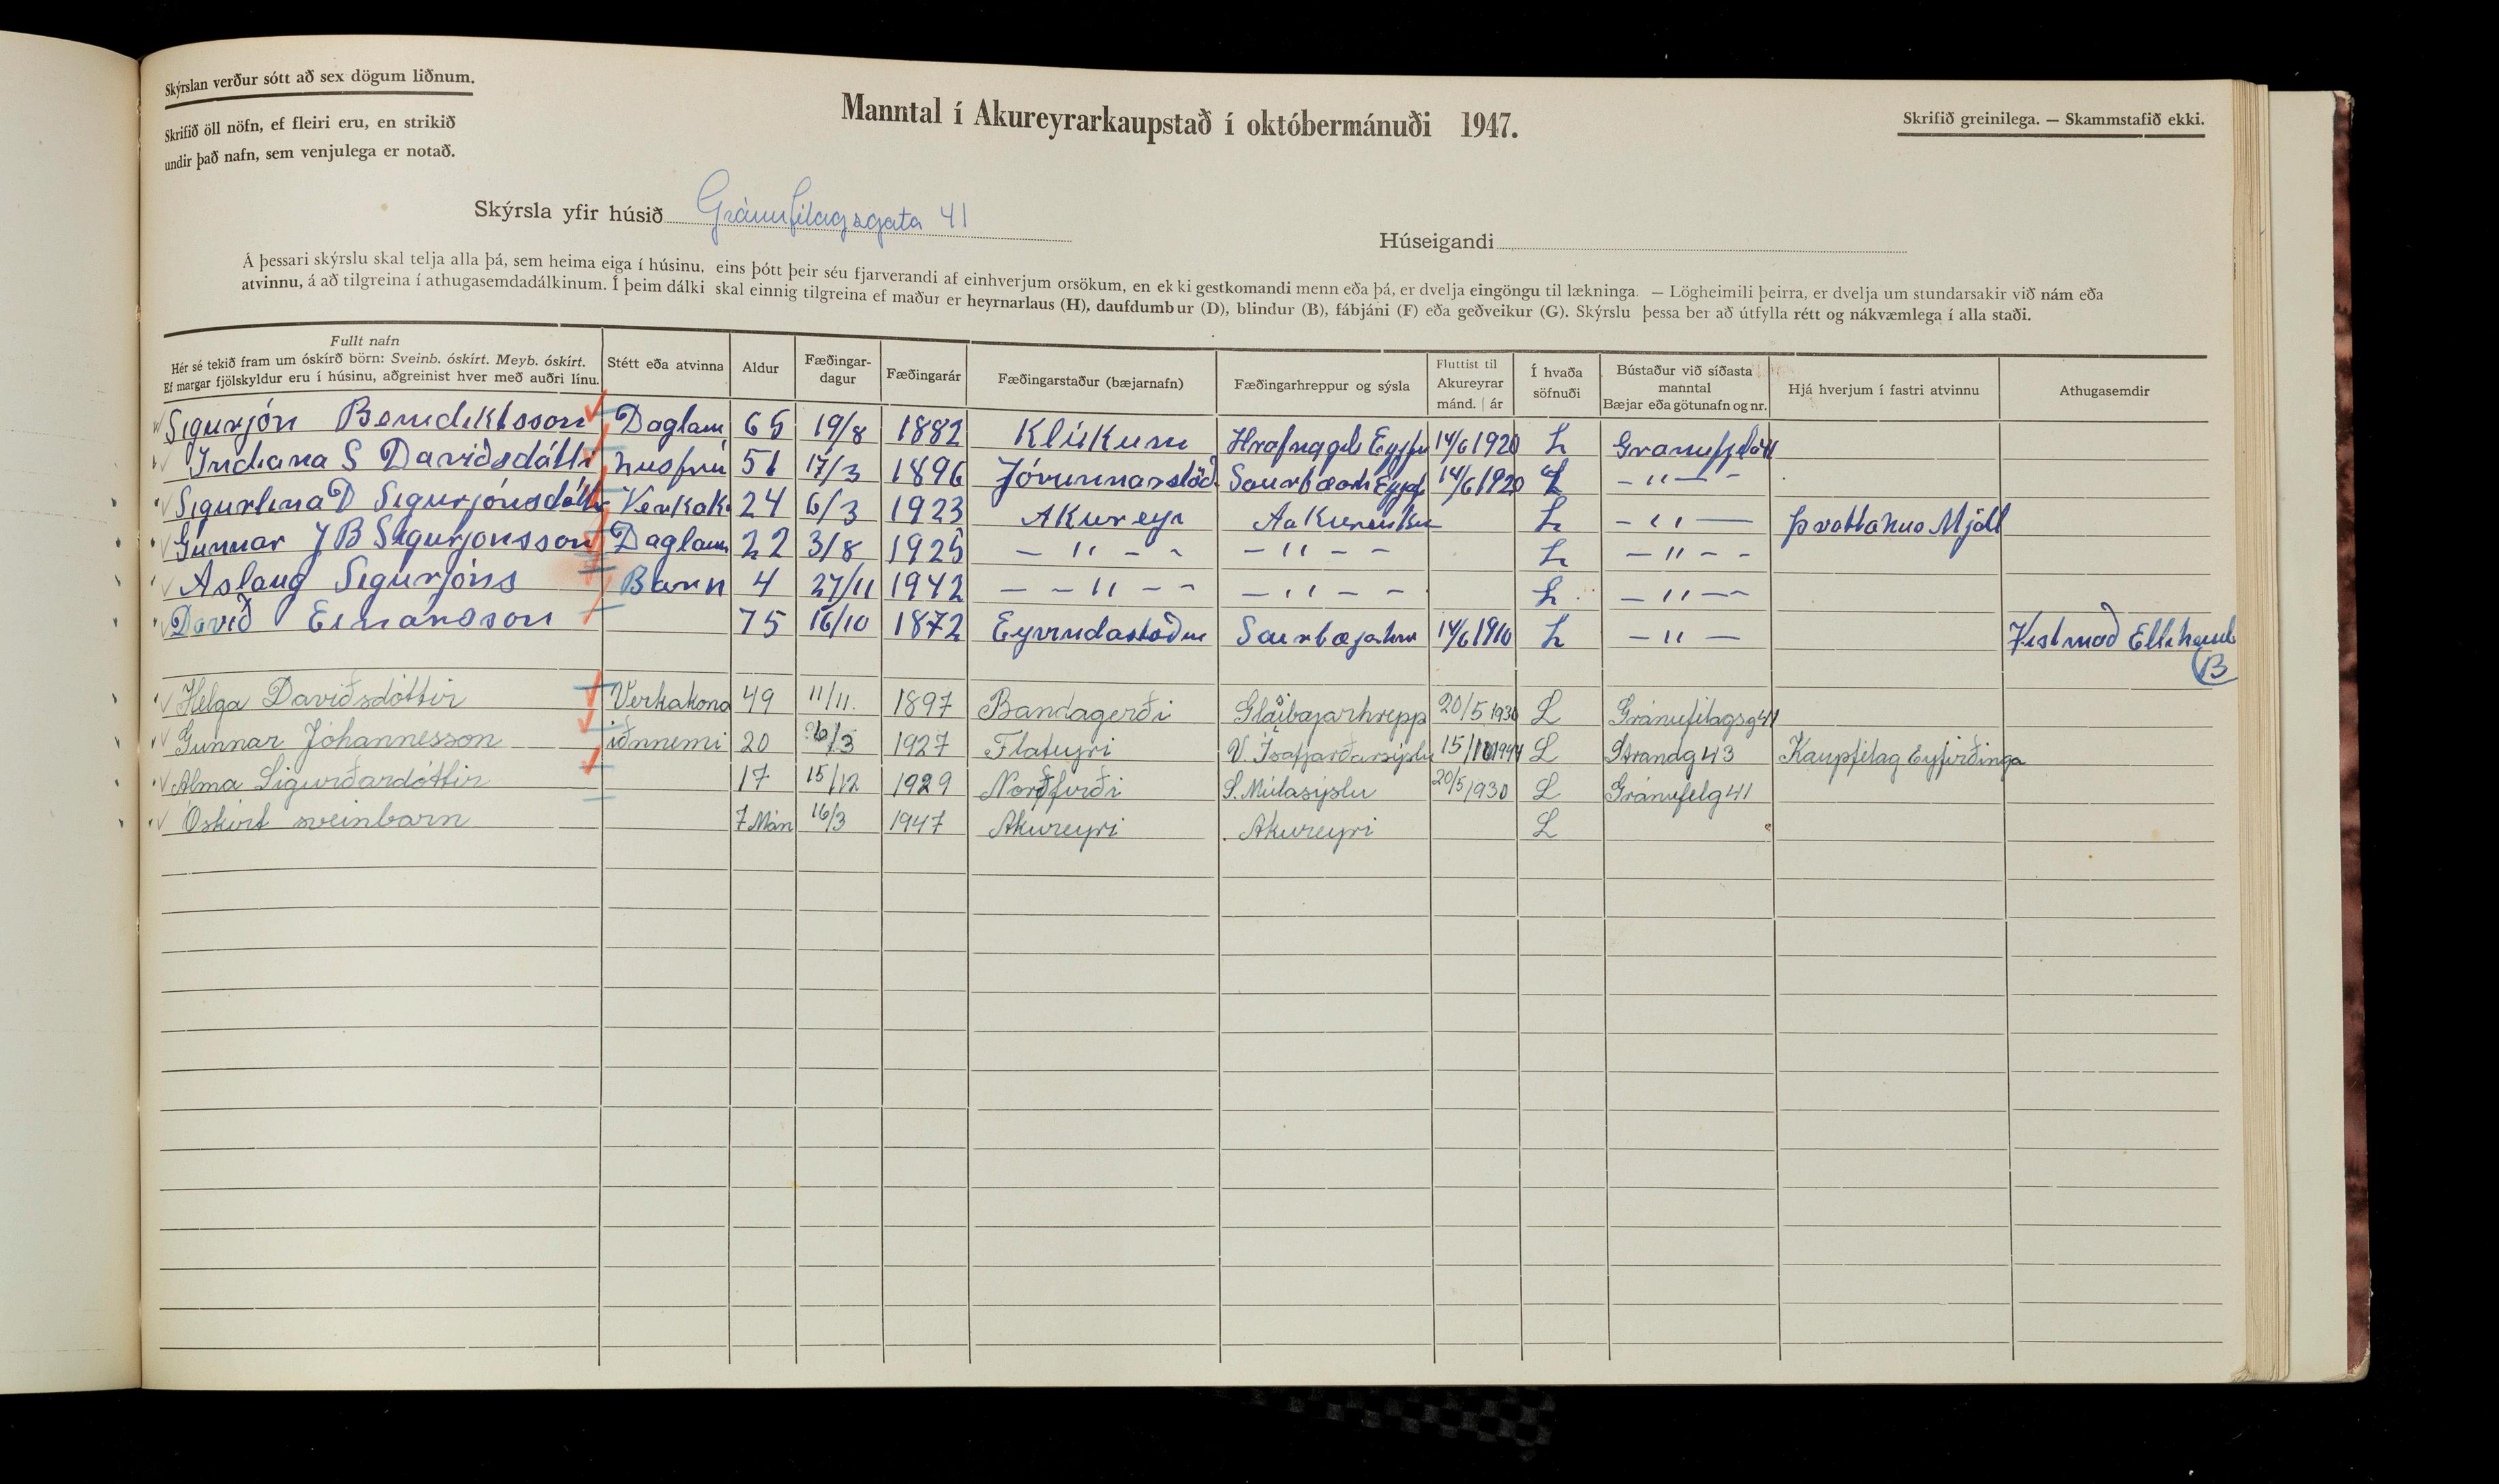 Skýrslan verður sótt að sex dögum liðnum.
Skrifið öll nöfn, ef fleiri eru, en strikið
undir það nafn, sem venjulega er notað.
Manntal í Akureyrarkaupstað í októbermánuði 1947.
Skrifið greinilega. — Skammstafið ekki.
Skýrsla yfir húsið Gránufélagsgata 41
Húseigandi
Á þessari skýrslu skal telja alla þá, sem heima eiga í húsinu, eins þótt þeir séu fjarverandi af einhverjum orsökum, en ekki gestkomandi menn eða þá, er dvelja eingöngu til lækninga. — Lögheimili þeirra, er dvelja um stundarsakir við nám eða
atvinnu, á að tilgreina í athugasemdadálkinum. Í þeim dálki skal einnig tilgreina ef maður er heyrnarlaus (H), daufdumbur (D), blindur (B), fábjáni (F) eða geðveikur (G). Skýrslu þessa ber að útfylla rétt og nákvæmlega í alla staði.
Fullt nafn Hér sé tekið fram um óskírð börn: Sveinb. óskírt. Meyb. óskírt. Ef margar fjölskyldur eru í húsinu, aðgreinist hver með auðri línu. Stétt eða atvinna Aldur Fæðingar-dagur Fæðingarár Fæðingarstaður (bæjarnafn) Fæðingarhreppur og sýsla Fluttist til Akureyrar mánd. | ár Í hvaða söfnuði Bústaður við síðasta manntal Bæjar eða götunafn og nr. Hjá hverjum í fastri atvinnu Athugasemdir
Sigurjón Benediktsson Daglaun 65 19/8 1882 Klúkum 14/6 1920 L
Indiana S Davíðsdótti husfrú 51 17/3 1896 Jórunnarstöð 14/6 1920 L — " — -
Sigurlina D Sigurjónsdótti Verkak. 24 6/3 1923 Akureyr L — " — Þvottahus Mjöll
Gunnar J B Sigurjonsson Daglaun 22 3/8 1925 — " - - — " - - L — " - -
Aslaug Sigurjóns Barn 4 27/11 1942 — - " - - — " - - L — " — -
Davíð Einarsson 75 16/10 1872 Eyvindastöðum 14/6 1910 L — " — Vistmað Elliheml
B
Helga Davíðsdóttir Verkakona 49 11/11. 1897 Bandagerði Glæsibæjarhrepp 20/5 1930 L Gránufélagsg 41
Gunnar Jóhannesson iðnnemi 20 6/3 1927 Flateyri V. Ísafjarðarsýslu L Strandg 43 Kaupfélag Eyfirðinga
Alma Sigurðardóttir 17 15/12 1929 Norðfirði S. Múlasýslu 20/5 1930 L Gránufélg 41
Óskírt sveinbarn 7 Mán 16/3 1947 Akureyri Akureyri L